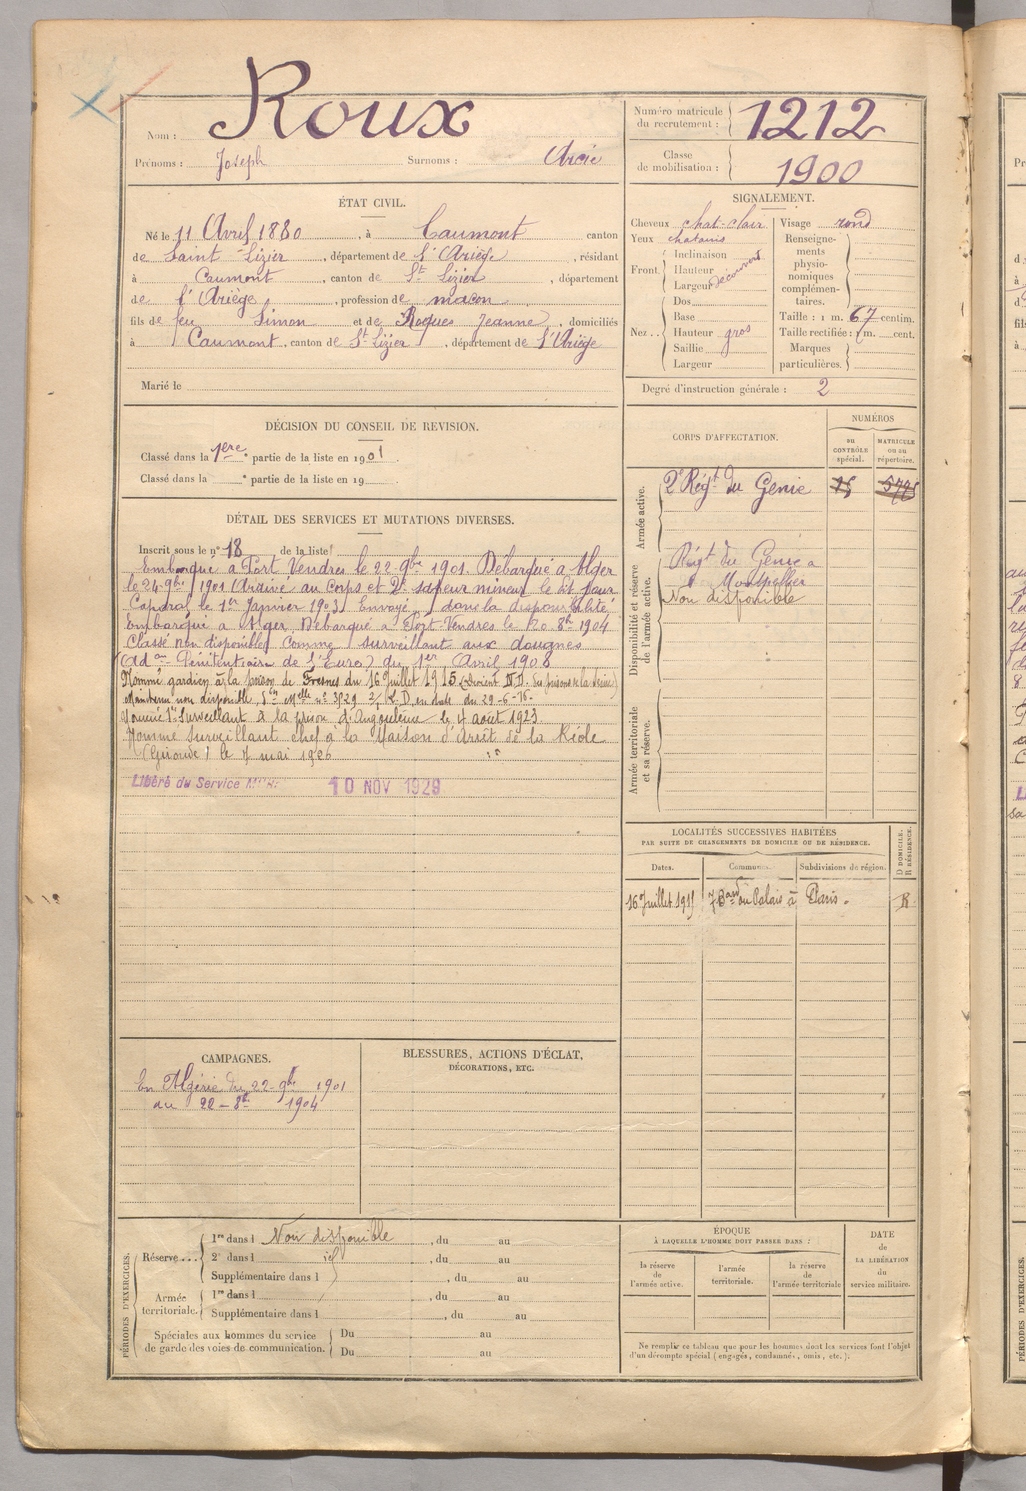 Nom : Roux
Prénoms : Joseph Surnoms :
Numéro matricule du recrutement : 1212
Classe de mobilisation : 1900
ÉTAT CIVIL.
Né le 11 Avril 1880, à Caumont canton
de Saint Lizier, département de l'Ariège, résidant
à Caumont, canton de St Lizier, département
de l'Ariège, profession de maçon
fils de feu Simon et de Roques Jeanne, domiciliés
à Caumont, canton de St Lizier, département de l'Ariège
Marié le
SIGNALEMENT.
Cheveux chat-clair
Yeux chatains
Front Inclinaison
Hauteur
Largeur
découvert
Nez Dos
Base
Hauteur gros
Saillie
Largeur
Visage rond
Renseigne-
ments
physio-
nomiques
complémen-
taires.
Taille : 1 m. 67 centim.
Taille rectifiée : 1 m. cent.
Marques
particulières.
Degré d'instruction générale : 2
DÉCISION DU CONSEIL DE REVISION.
Classé dans la 1ere partie de la liste en 1901.
Classé dans la partie de la liste en 19
DÉTAIL DES SERVICES ET MUTATIONS DIVERSES.
Inscrit sous le n° 18 de la liste
Embarqué à Port Vendres le 22 9bre 1901. Débarqué à Alger
le 24 9bre 1901 Arrivé au corps et 2e sapeur mineur le dit jour
Caporal le 1er Janvier 1903. Envoyé dans la disponibilité
Embarqué à Alger, Débarqué à Port-Vendres le 8bre 1904
Classé non disponible comme surveillant aux douanes
(Adon Pénitentiaire de l'Eure) du 1er Avril 1908
Nommé gardien à la prison de Fresnes du 16 Juillet 1915 (Devient N.D. des prisons de la Seine)
Maintenu non disponible en date du 29-6-15.
Nommé 1er Surveillant à la prison d'Angoulême le 4 août 1923
Nommé Surveillant chef à la Maison d'Arrêt de la Réole
(Gironde) le 7 mai 1926
Libéré du Service 10 NOV 1929
CORPS D'AFFECTATION.
NUMÉROS
au CONTRÔLE spécial.
MATRICULE ou au répertoire.
Armée active.
2e Régt du Génie
Disponibilité et réserve de l'armée active.
Régt du Génie à
Montpellier
Non disponible
Armée territoriale et sa réserve.
LOCALITÉS SUCCESSIVES HABITÉES
PAR SUITE DE CHANGEMENTS DE DOMICILE OU DE RÉSIDENCE.
Dates. Communes. Subdivisions de région.
D DOMICILE. R RÉSIDENCE.
16 Juillet 1915 7 Bard du Palais à Paris. R
CAMPAGNES.
En Algérie du 22-9bre 1901
au 22-8bre 1904
BLESSURES, ACTIONS D'ÉCLAT,
DÉCORATIONS, ETC.
PÉRIODES D'EXERCICES.
Réserve... 1re dans l Non disponible, du au
2e dans l id, du au
Supplémentaire dans l, du au
Armée territoriale. 1re dans l, du au
Supplémentaire dans l, du au
Spéciales aux hommes du service
de garde des voies de communication.
Du au
Du au
ÉPOQUE
À LAQUELLE L'HOMME DOIT PASSER DANS :
la réserve de l'armée active.
l'armée territoriale.
la réserve de l'armée territoriale
DATE de LA LIBÉRATION du service militaire.
Ne remplir ce tableau que pour les hommes dont les services font l'objet
d'un décompte spécial (engagés, condamnés, omis, etc.).